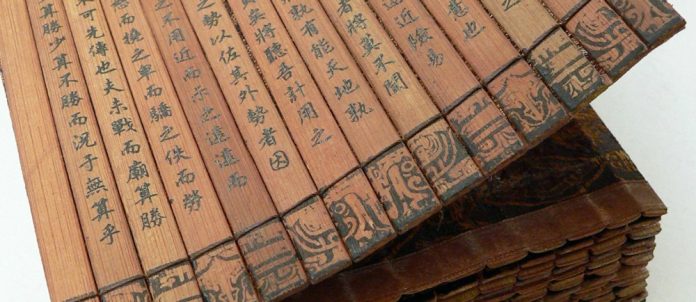 也
遠近險易
者將莫不聞
孰有能天地孰
矣將聽吾計用之
之勢以佐其外勢者因
之不用近而示之遠遠而
而撓之卑而驕之佚而勞
不可先傳也夫未戰而廟算勝
算勝少算不勝而況于無算乎